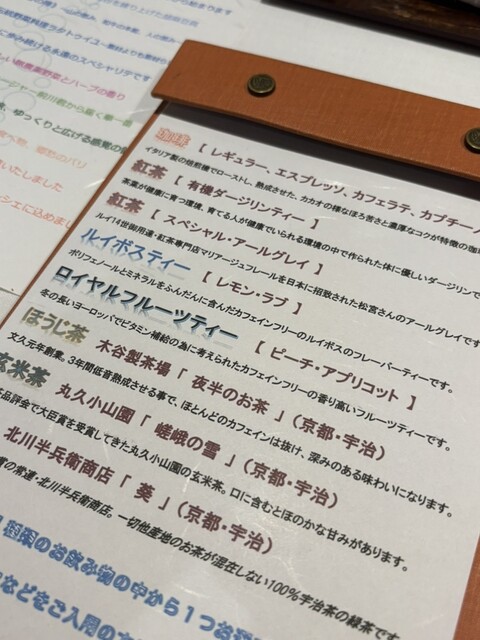 珈琲 【 レギュラー、エスプレッソ、カフェラテ、カプチーノ
イタリア製の焙煎機でローストし、熟成させた、カカオの様なほろ苦さと濃厚なコクが特徴の珈
紅茶 【 有機ダージリンティー 】
茶葉が健康に育つ環境、育てる人が健康でいられる環境の中で作られた体に優しいダージリンで
紅茶 【 スペシャル・アールグレイ 】
ルイ14世御用達・紅茶専門店マリアージュフレールを日本に招致された松宮さんのアールグレイです
ルイボスティー 【 レモン・ラブ 】
ポリフェノールとミネラルをふんだんに含んだカフェインフリーのルイボスのフレーバーティーです。
ロイヤルフルーツティー 【 ピーチ・アプリコット 】
冬の長いヨーロッパでビタミン補給の為に考えられたカフェインフリーの香り高いフルーツティーです。
ほうじ茶 木谷製茶場「 夜半のお茶 」(京都・宇治)
文久元年創業。3年間低音熟成させる事で、ほとんどのカフェインは抜け、深みのある味わいになります。
玄米茶 丸久小山園「 嵯峨の雪 」(京都・宇治)
品評会で大臣賞を受賞してきた丸久小山園の玄米茶。口に含むとほのかな甘みがあります。
北川半兵衛商店「 葵 」(京都・宇治)
賞の常連・北川半兵衛商店。一切他産地のお茶が混在しない100%宇治茶の緑茶です
のお飲み物の中から1つお選
などをご入用の